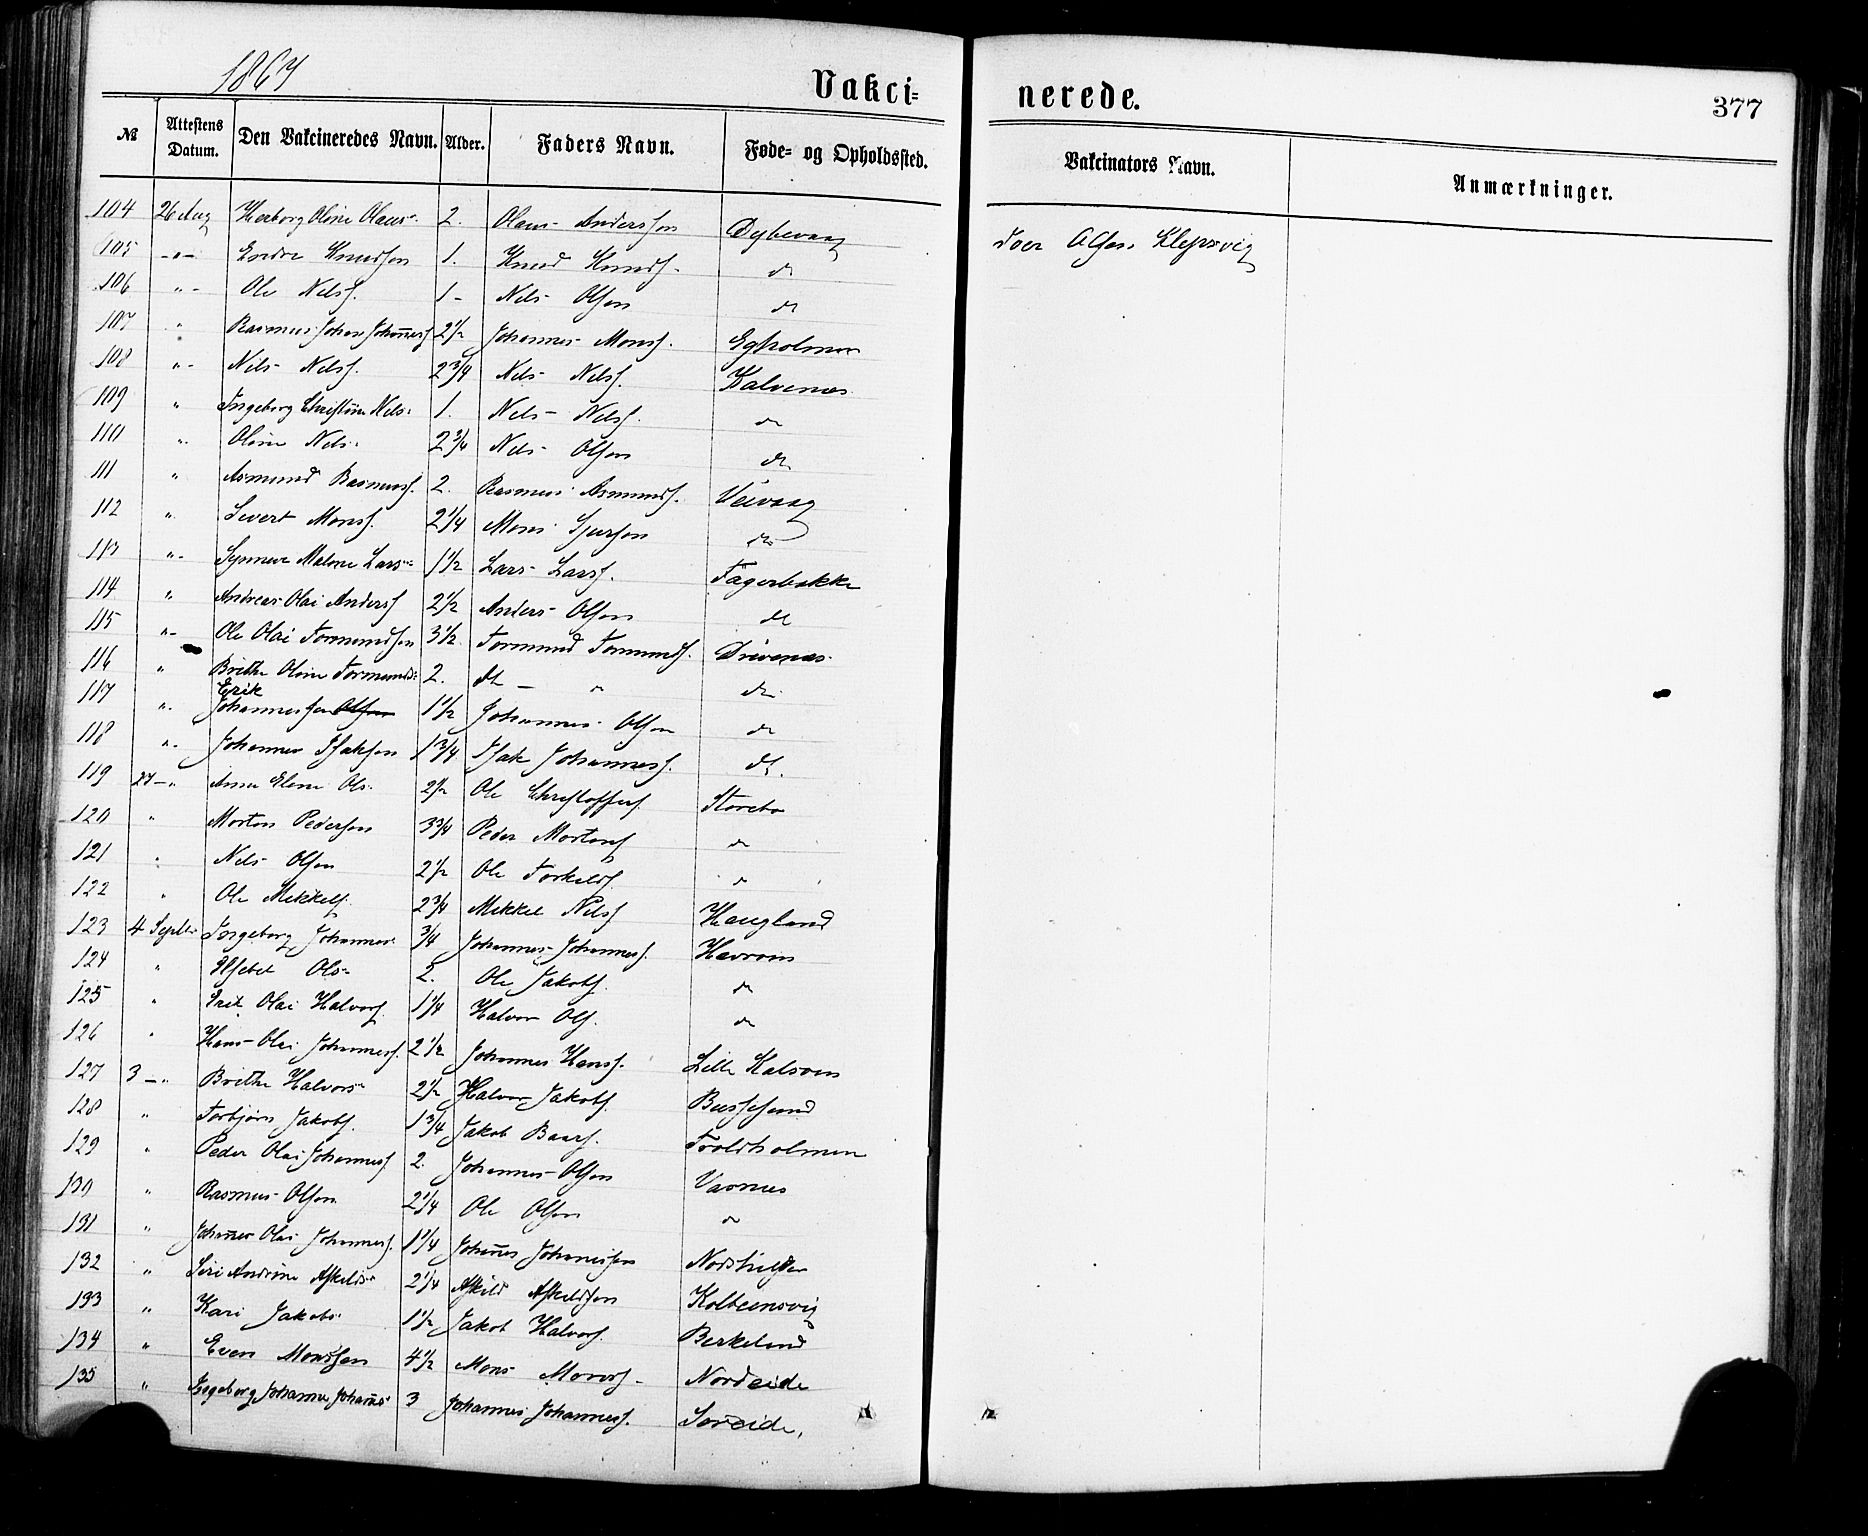 1867
Vakci=
nerede.
377
№ Attestens Datum. Den Vakcineredes Navn. Alder. Faders Navn. Føde= og Opholdssted. Vakcinators Navn. Anmærkninger.
104 26 Aug Herborg Oline Olaus- 2. Olaus Andersson Dybevaag Iver Olsen Klepsvig
105 -"- Endre Knudsen 1. Knud Knuds. do
106 "- Ole Nelss. 1- Nels Olsen do
107 " Rasmus Johan Johannes 2½ Johannes Monss. Egholmen
108 "- Nils Nelss. 2¾ Nels Nelss. Kalvenes
109 " Ingeborg Christine Nels- 1. Nels Nelss. do
110 " Oline Nels- 2¾ Nels Olsen do
111 " Asmund Rasmuss. 2. Rasmus Asmunds. Veivaag
112 " Sivert Monss. 2¼ Mons Sjursen do
113 "- Synneve Malene Lars- 1½ Lars Larss. Fagerbakke
114 " Andreas Olai Anders 2½ Anders Olsen do
115 "- Ole Olai Tormundsen 3½ Tormund Tormunds. Drivenes
116 " Brithe Oline Tormunds- 2. do - " do
117 " Erik Johannessen Olsen 1½ Johannes Olsen do
118 " Johannes Isaksen 1¾ Isak Johanness. do.
119 27-" Anna Elene Ols- 2½ Ole Christoffers. Storebø
120 " Morten Pedersen 3¾ Peder Mortens do
121 " Nels Olsen 2½ Ole Torkelds do
122 " Ole Mikkels 2¾ Mikkel Nelss Haugland
123 4 Septbr Ingeborg Johannes- ¾ Johannes Johanness. Havreen
124 " Elsebet Ols- 2. Ole Jakobs. do
125 " Erik Olai Halvors. 1¼ Halvor Ols. do
126 " Hans Olai Johanness. 2½ Johannes Hanss. Lille Kalsøen
127 3-" Brithe Halvors- 2½ Halvor Jakobs. Bussesund
128 " Torbjørn Jakobs. 1¾ Jakob Baars. Troldholmen
129 " Peder Olai Johanness. 2. Johannes Olsen Varnes
130 " Rasmus Olsen 2¼ Ole Olsen do
131 " Johannes Olai Johanness. 1¼ Johannes Johannessen Nordhuglen
132 " Siri Andrine Askilds- 2¼ Askild Askildsen Kolbeensvig
133 " Kari Jakobs- 1½ Jakob Halvors. Berkeland
134 " Even Monssen 4½ Mons Monss. Nordeide
135 " Ingeborg Johanne Johannes- 3 Johannes Johanness. Søreide.